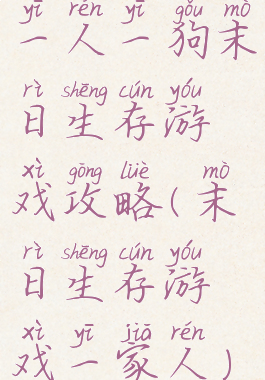 yī rén yī gǒu mò
一人一狗末
rì shēng cún yóu
日生存游
xì gōng lüè mò
戏攻略(末
rì shēng cún yóu
日生存游
xì yī jiā rén
戏一家人)